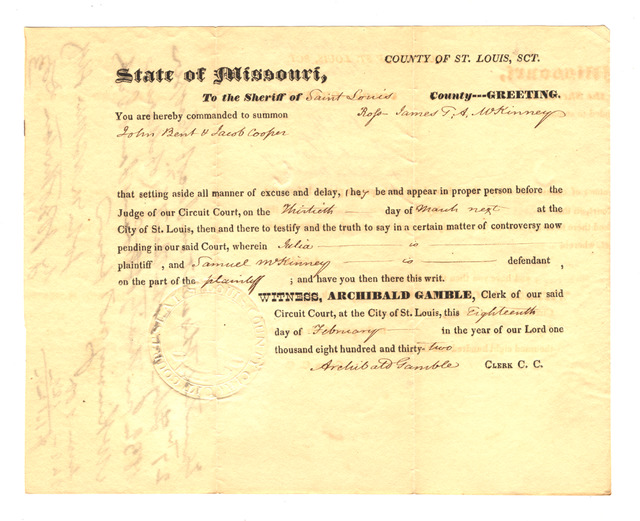 COUNTY OF ST. LOUIS, SCT.
State of Missouri,
To the Sheriff of Saint Louis County---GREETING.
You are hereby commanded to summon Ross James T. A. McKinney
John Bent & Jacob Cooper
that setting aside all manner of excuse and delay, they be and appear in proper person before the
Judge of our Circuit Court, on the Thirtieth day of March next at the
City of St. Louis, then and there to testify and the truth to say in a certain matter of controversy now
pending in our said Court, wherein Julia is
plaintiff , and Samuel McKinney is defendant ,
on the part of the plaintiff ; and have you then there this writ.
WITNESS, ARCHIBALD GAMBLE, Clerk of our said
Circuit Court, at the City of St. Louis, this Eighteenth
day of February in the year of our Lord one
thousand eight hundred and thirty-two
Archibald Gamble CLERK C. C.